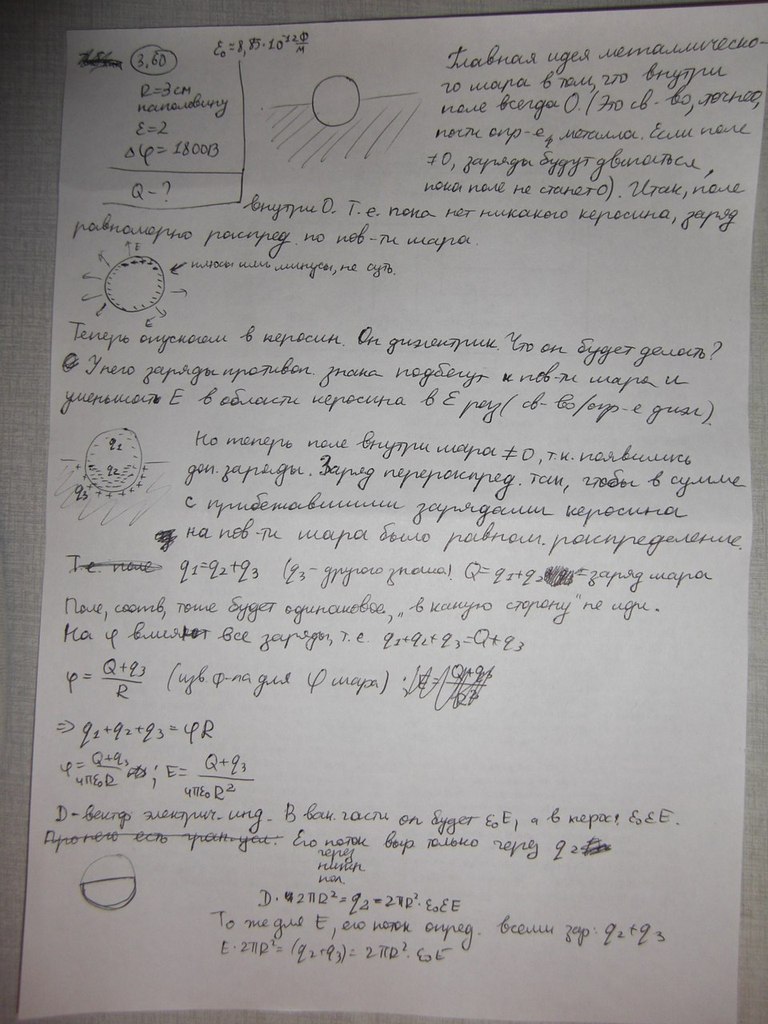 3,60
ε₀=8,85·10⁻¹² Ф/м
R=3см
наполовину
ε=2
Δφ=1800В
Q-?
Главная идея металлическо-
го шара в том, что внутри
поле всегда 0. (Это св-во, точнее,
почти опр-е, металла. Если поле
≠0, заряды будут двигаться,
пока поле не станет 0). Итак, поле
внутри 0. Т.е. пока нет никакого керосина, заряд
равномерно распред. по пов-ти шара.
E
плюсы или минусы, не суть.
E
Теперь опускаем в керосин. Он диэлектрик. Что он будет делать?
У него заряды противоп. знака подбегут к пов-ти шара и
уменьшат E в области керосина в ε раз (св-во/опр-е диэл).
q₁
q₂
q₃
Но теперь поле внутри шара ≠0, т.к. появились
доп. заряды. Заряд перераспред. так, чтобы в сумме
с прибежавшими зарядами керосина
на пов-ти шара было равном. распределение.
Т.е. поле q₁=q₂+q₃ (q₃-другого знака! Q=q₁+q₂ =заряд шара
Поле, соотв, тоже будет одинаковое, "в какую сторону" не иди.
На φ влияют все заряды, т.е. q₁+q₂+q₃=Q+q₃
φ= Q+q₃/R (изв. ф-ла для φ шара)
⇒ q₁+q₂+q₃=φR
φ= Q+q₃/4πε₀R ; E= Q+q₃/4πε₀R²
D-вектор электрич. инд. В части он будет ε₀E, а в керос. ε₀εE.
Про него есть гран. усл. Его поток выр. только через q₂
через
нижн.
пол.
D·2πR²=q₂=2πR²·ε₀εE
То же для E, его поток опред. всеми зар: q₂+q₃
E·2πR²=(q₂+q₃)=2πR²·ε₀E